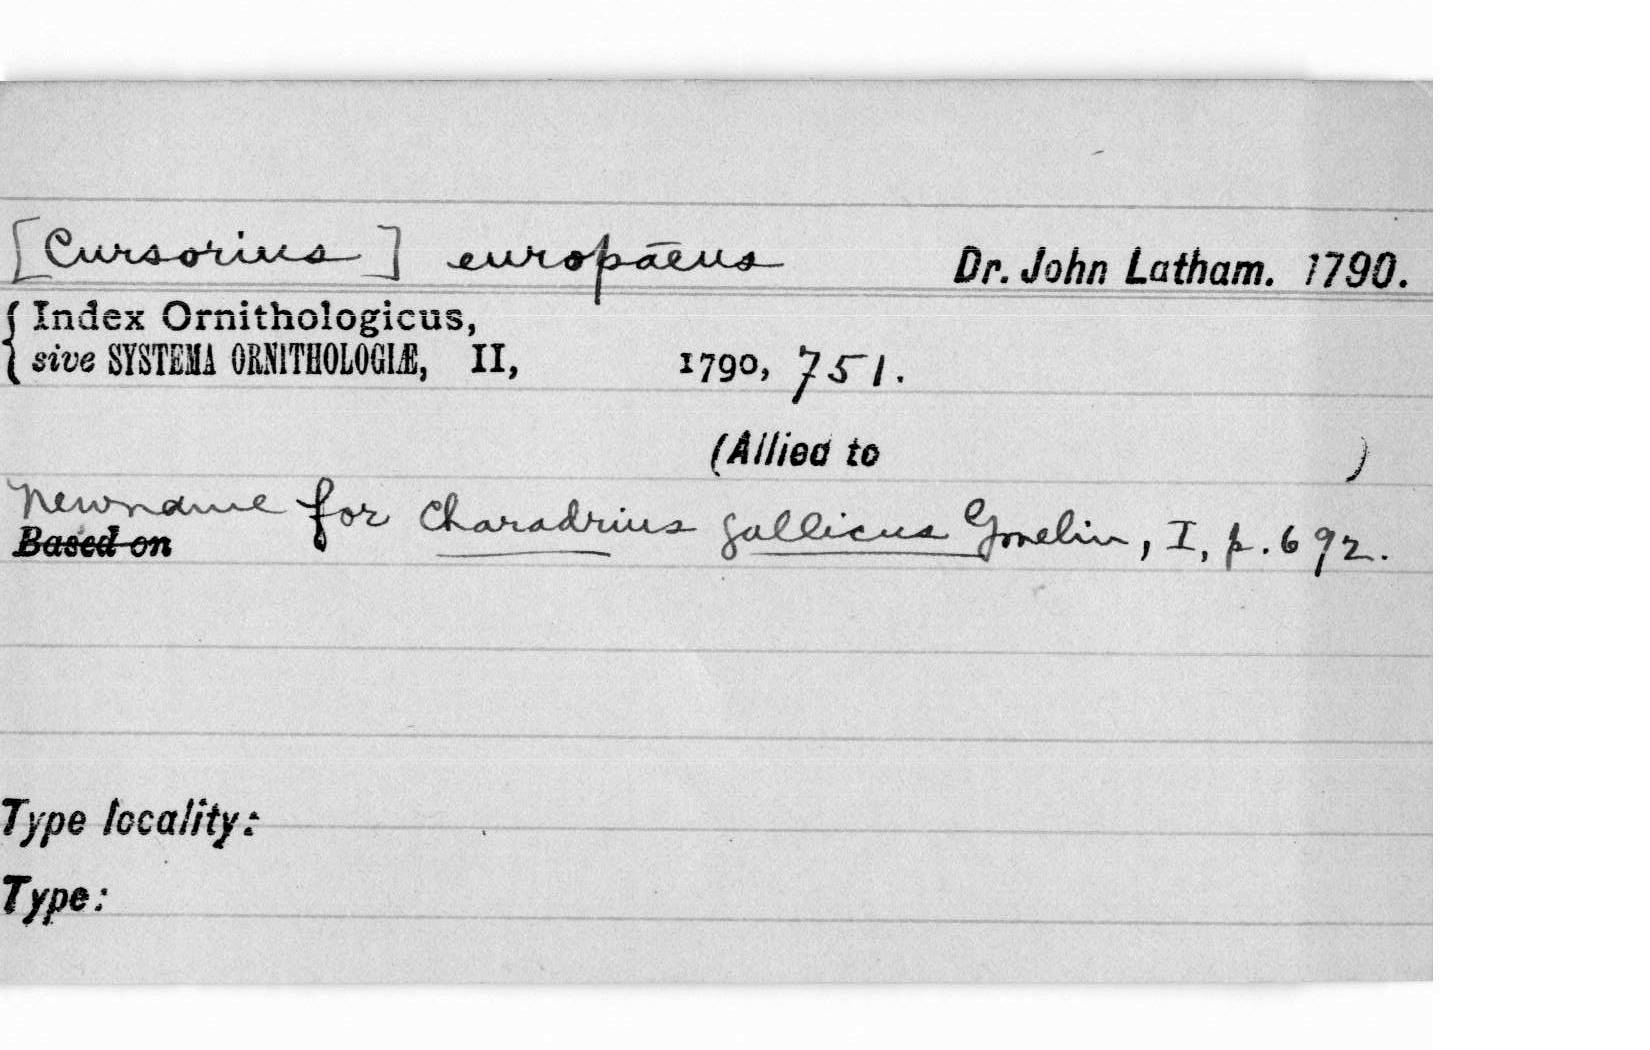 [Cursorius] europāeus Dr. John Latham. 1790.
Index Ornithologicus,
sive SYSTEMA ORNITHOLOGIÆ, II, 1790, 751.
(Allied to )
New name for Charadrius gallicus Gmelin, I, p. 692.
Based on
Type locality:
Type: